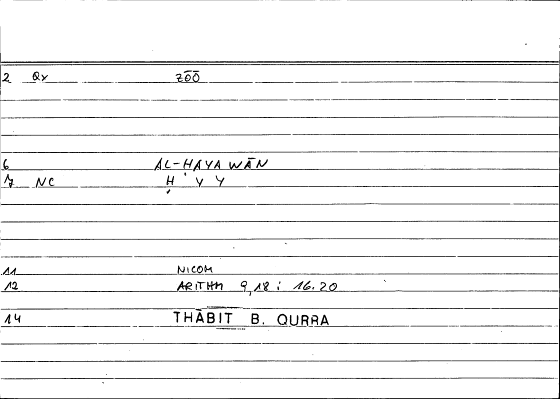 2 Qy ZŌŌ
6 AL-ḤAYAWĀN
7 NC Ḥ Y Y
11 NICOM
12 ARITHM 9,18 : 16.20
14 THĀBIT B. QURRA